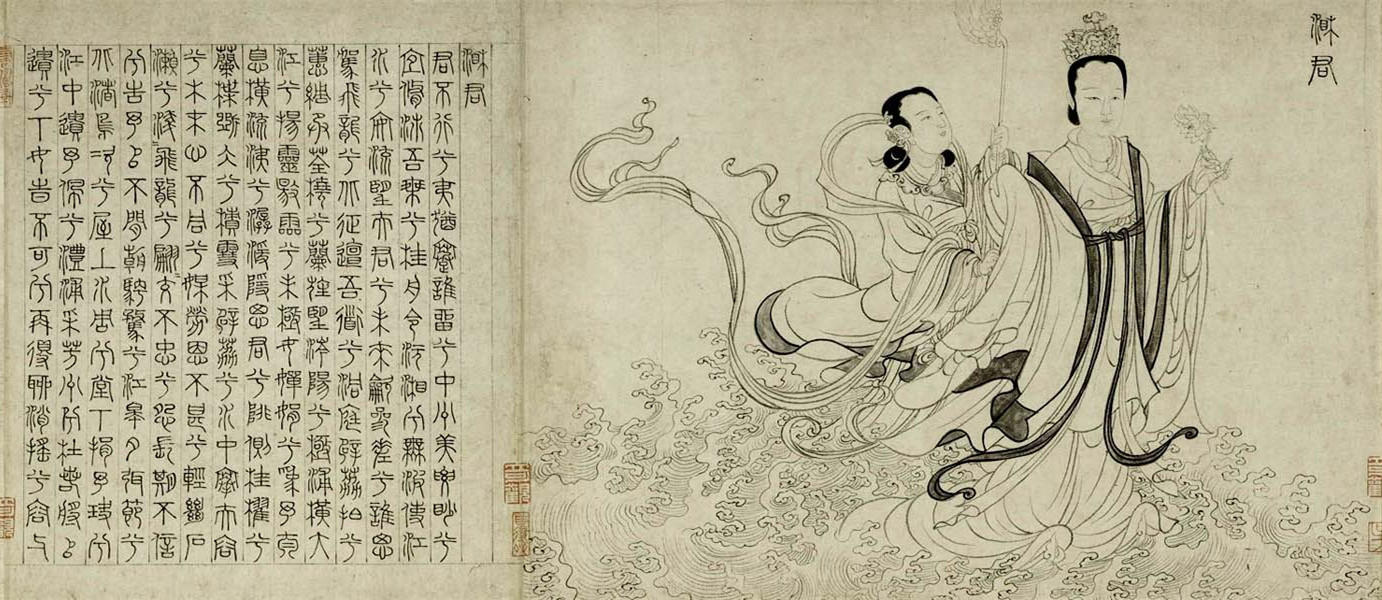 湘君
湘君
君不行兮夷猶蹇誰留兮中州美要眇兮
宜修沛吾乘兮桂舟令沅湘兮無波使江
水兮安流望夫君兮未來歙參差兮誰思
駕飛龍兮北征邅吾道兮洞庭薜荔拍兮
蕙綢承荃橈兮蘭旌望涔陽兮極浦橫大
江兮揚靈揚靈兮未極女嬋媛兮為予太
息橫流涕兮潺湲隱思君兮陫側桂櫂兮
蘭枻斲冰兮積雪采薜荔兮水中搴芙蓉
兮木末心不同兮媒勞恩不甚兮輕絕石
瀨兮淺〻飛龍兮翩〻交不忠兮怨長期不信
兮告予以不閒朝騁騖兮江皋夕弭節兮
北渚鳥次兮屋上水周兮堂下捐予玦兮
江中遺予佩兮澧浦采芳州兮杜若將以
遺兮下女告不可兮再得聊逍遙兮容與